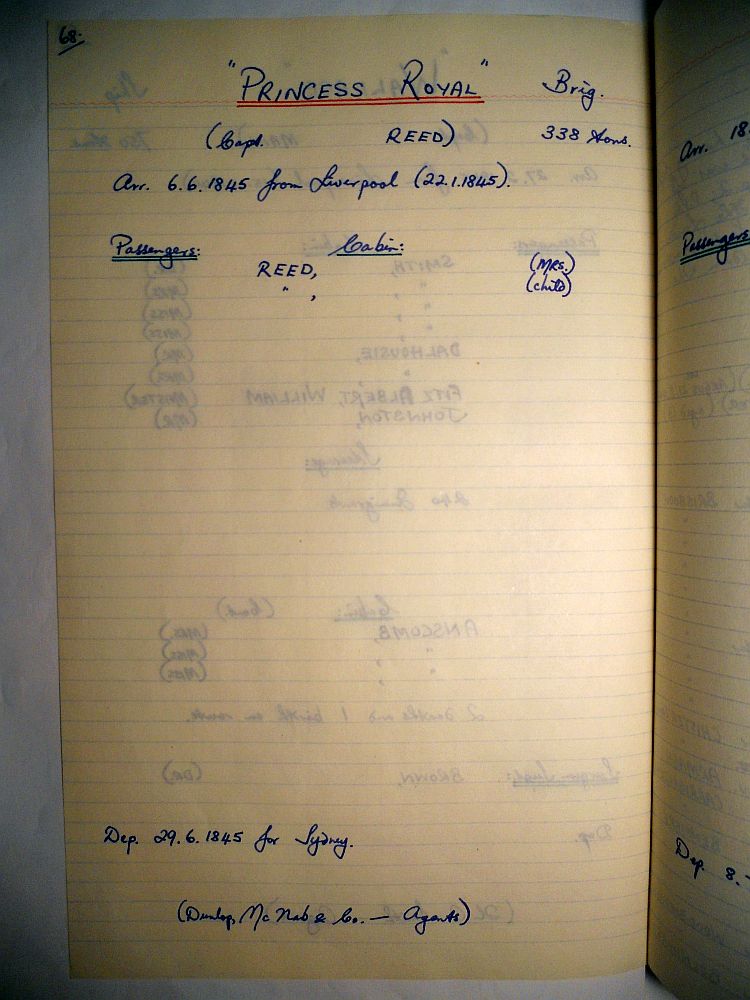 68.
"PRINCESS ROYAL" Brig.
(Capt. REED) 338 tons.
Arr. 6.6.1845 from Liverpool (22.1.1845).
Passengers: Cabin:
REED, (MRS.)
" , (child)
Dep. 29.6.1845 for Sydney.
(Dunlop, McNab & Co. — Agents)
Arr. 18.
Passengers
Dep. 8.-